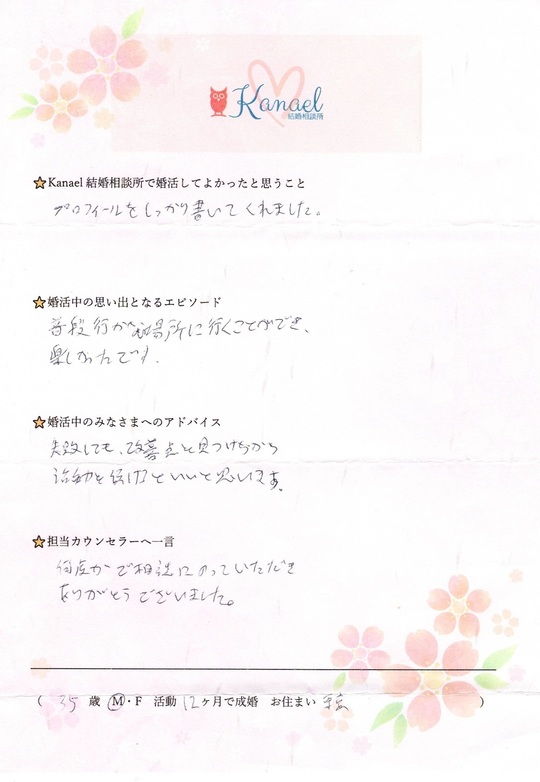 Kanael
結婚相談所
Kanael 結婚相談所で婚活してよかったと思うこと
プロフィールをしっかり書いてくれました。
婚活中の思い出となるエピソード
普段行かない場所に行くことができ、
楽しかったです.
婚活中のみなさまへのアドバイス
失敗しても、改善点を見つけながら
活動を続けるといいと思います。
担当カウンセラーへ一言
何度かご相談にのっていただき
ありがとうございました。
( 35 歳 M・F 活動 12ヶ月で成婚 お住まい )